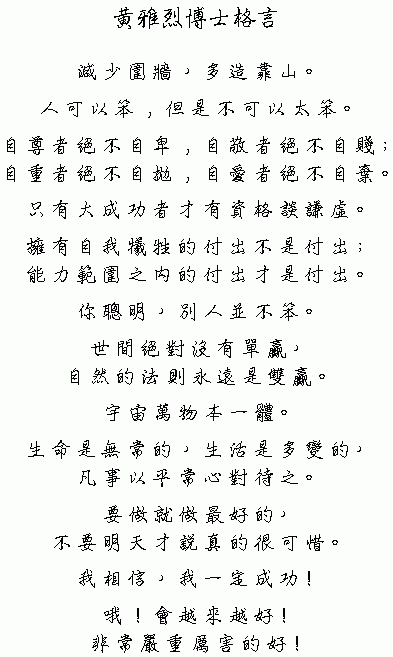 黃雅烈博士格言
減少圍牆，多造靠山。
人可以笨，但是不可以太笨。
自尊者絕不自卑，自敬者絕不自賤；
自重者絕不自拋，自愛者絕不自棄。
只有大成功者才有資格談謙虛。
擁有自我犧牲的付出不是付出；
能力範圍之內的付出才是付出。
你聰明，別人並不笨。
世間絕對沒有單贏，
自然的法則永遠是雙贏。
宇宙萬物本一體。
生命是無常的，生活是多變的，
凡事以平常心對待之。
要做就做最好的，
不要明天才說真的很可惜。
我相信，我一定成功！
哦！會越來越好！
非常嚴重厲害的好！